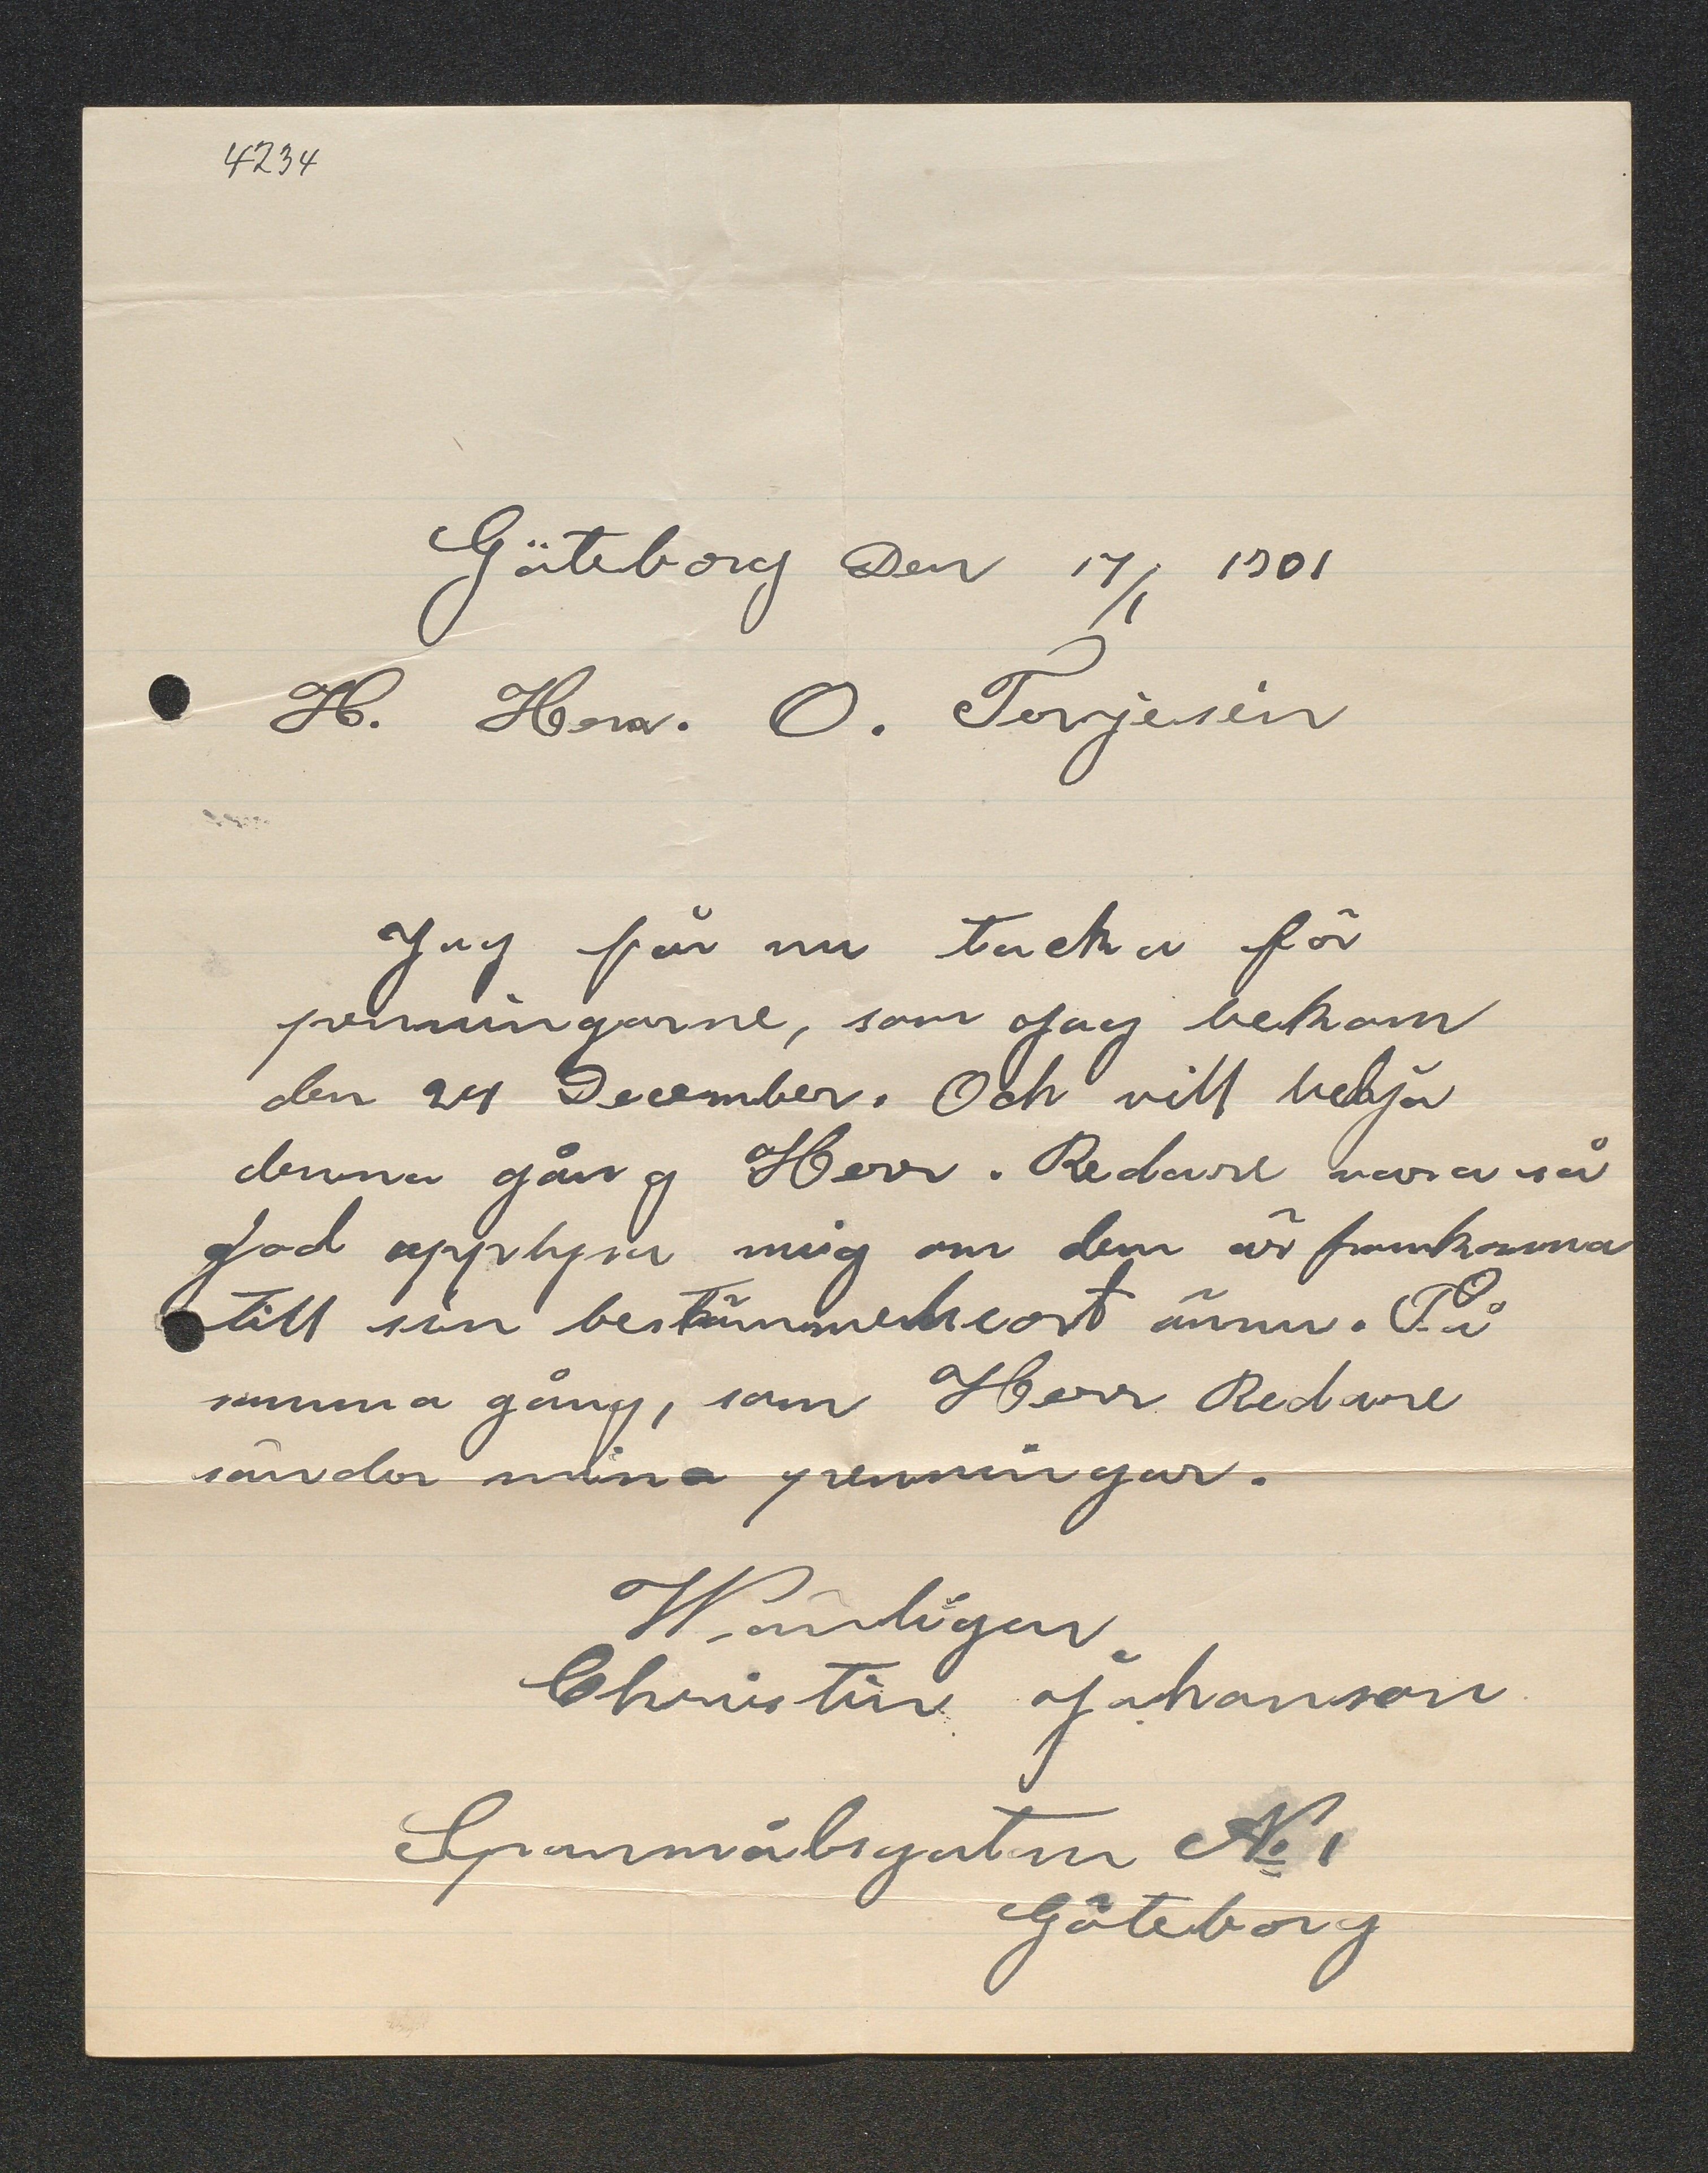 4234
Göteborg Den 17/1 1901
H. Herr. O. Terjesen
Jag får nu tacka för
penningarne, som Jag bekom
den 24 December. Och vill bedja
denna gång Herr. Redare vara så
God upplysa mig om dem är framkomna
till sin bestämmelseort ännu. På
samma gång, som Herr Redare
sänder mina penningar.
Wänligen
Christin Johanson
Spannmålsgatan № 1
Göteborg